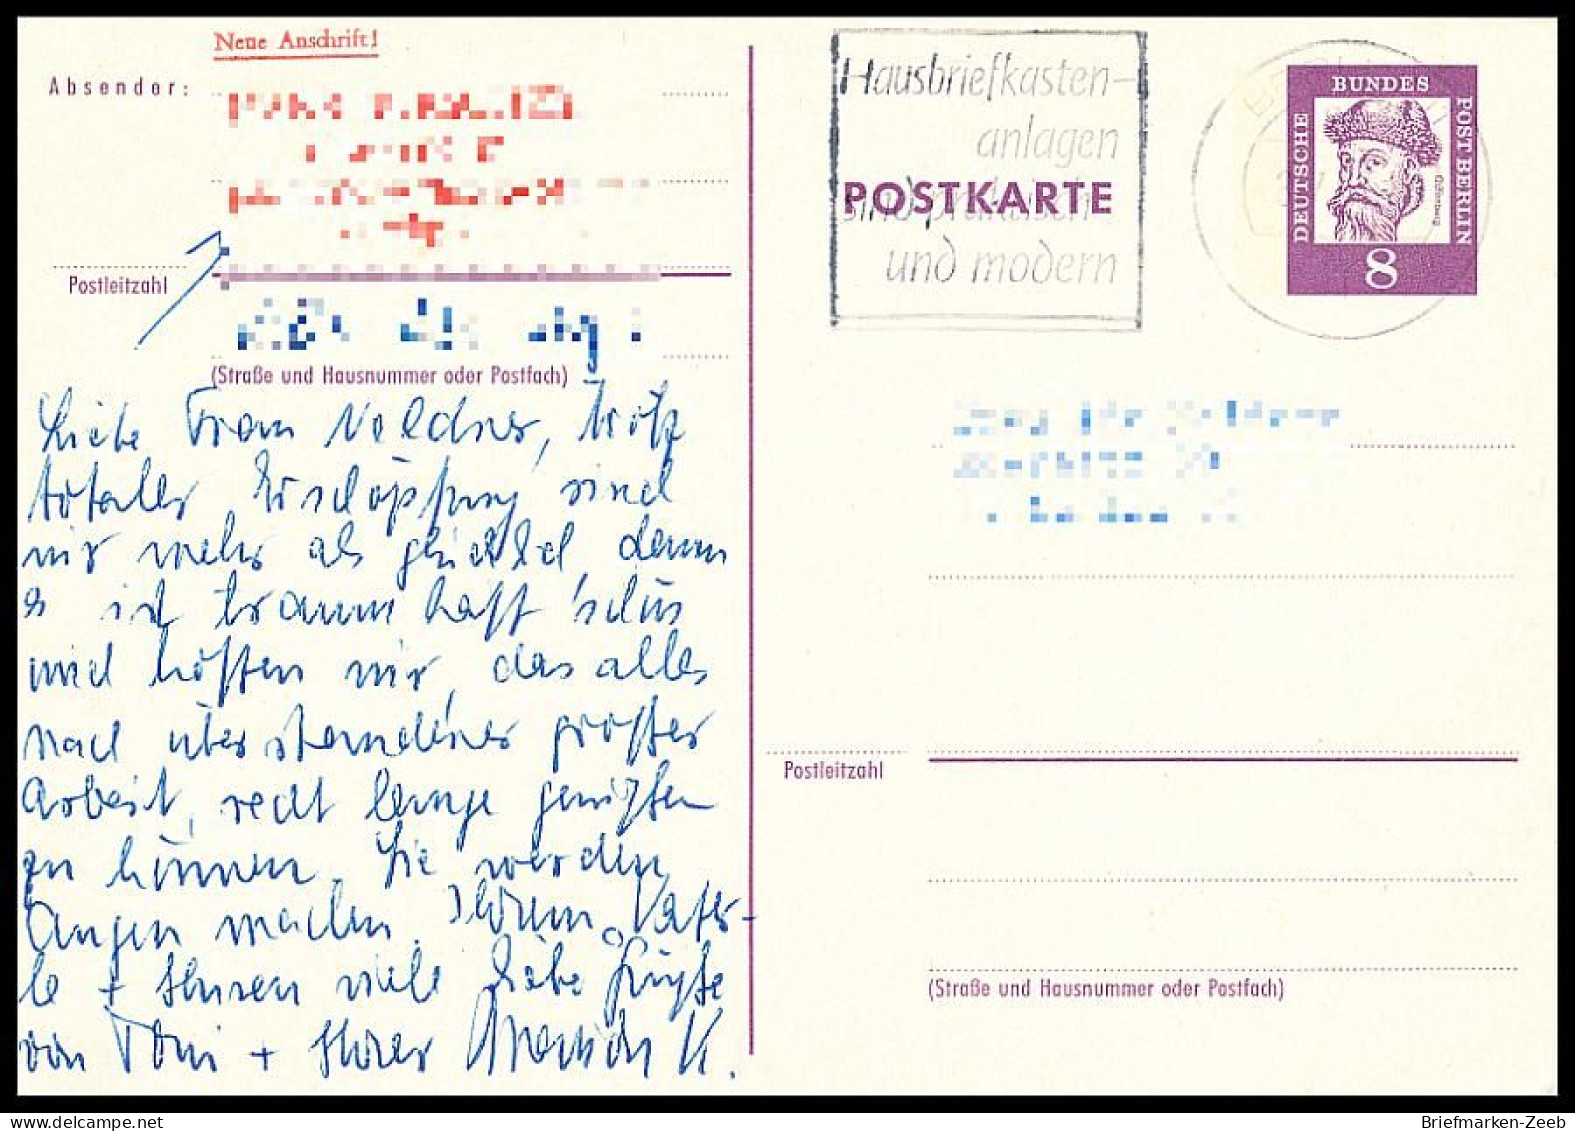 Neue Anschrift!
Absender:
Postleitzahl
(Straße und Hausnummer oder Postfach)
Liebe Frau Neldner, trotz
totaler Erschöpfung sind
wir mehr als glücklich, denn
es ist traumhaft schön
und hoffen wir, das alles
nach überstandener großer
Arbeit, recht lange genießen
zu können. Sie werden
Augen machen. Ihrem Vater-
le + Ihnen viele liebe Grüße
von Toni + Ihrer K.
Hausbriefkasten-
anlagen
sind praktisch
und modern
POSTKARTE
DEUTSCHE
BUNDES
POST BERLIN
Gutenberg
8
BERLIN
Postleitzahl
(Straße und Hausnummer oder Postfach)
Briefmarken-Zeeb